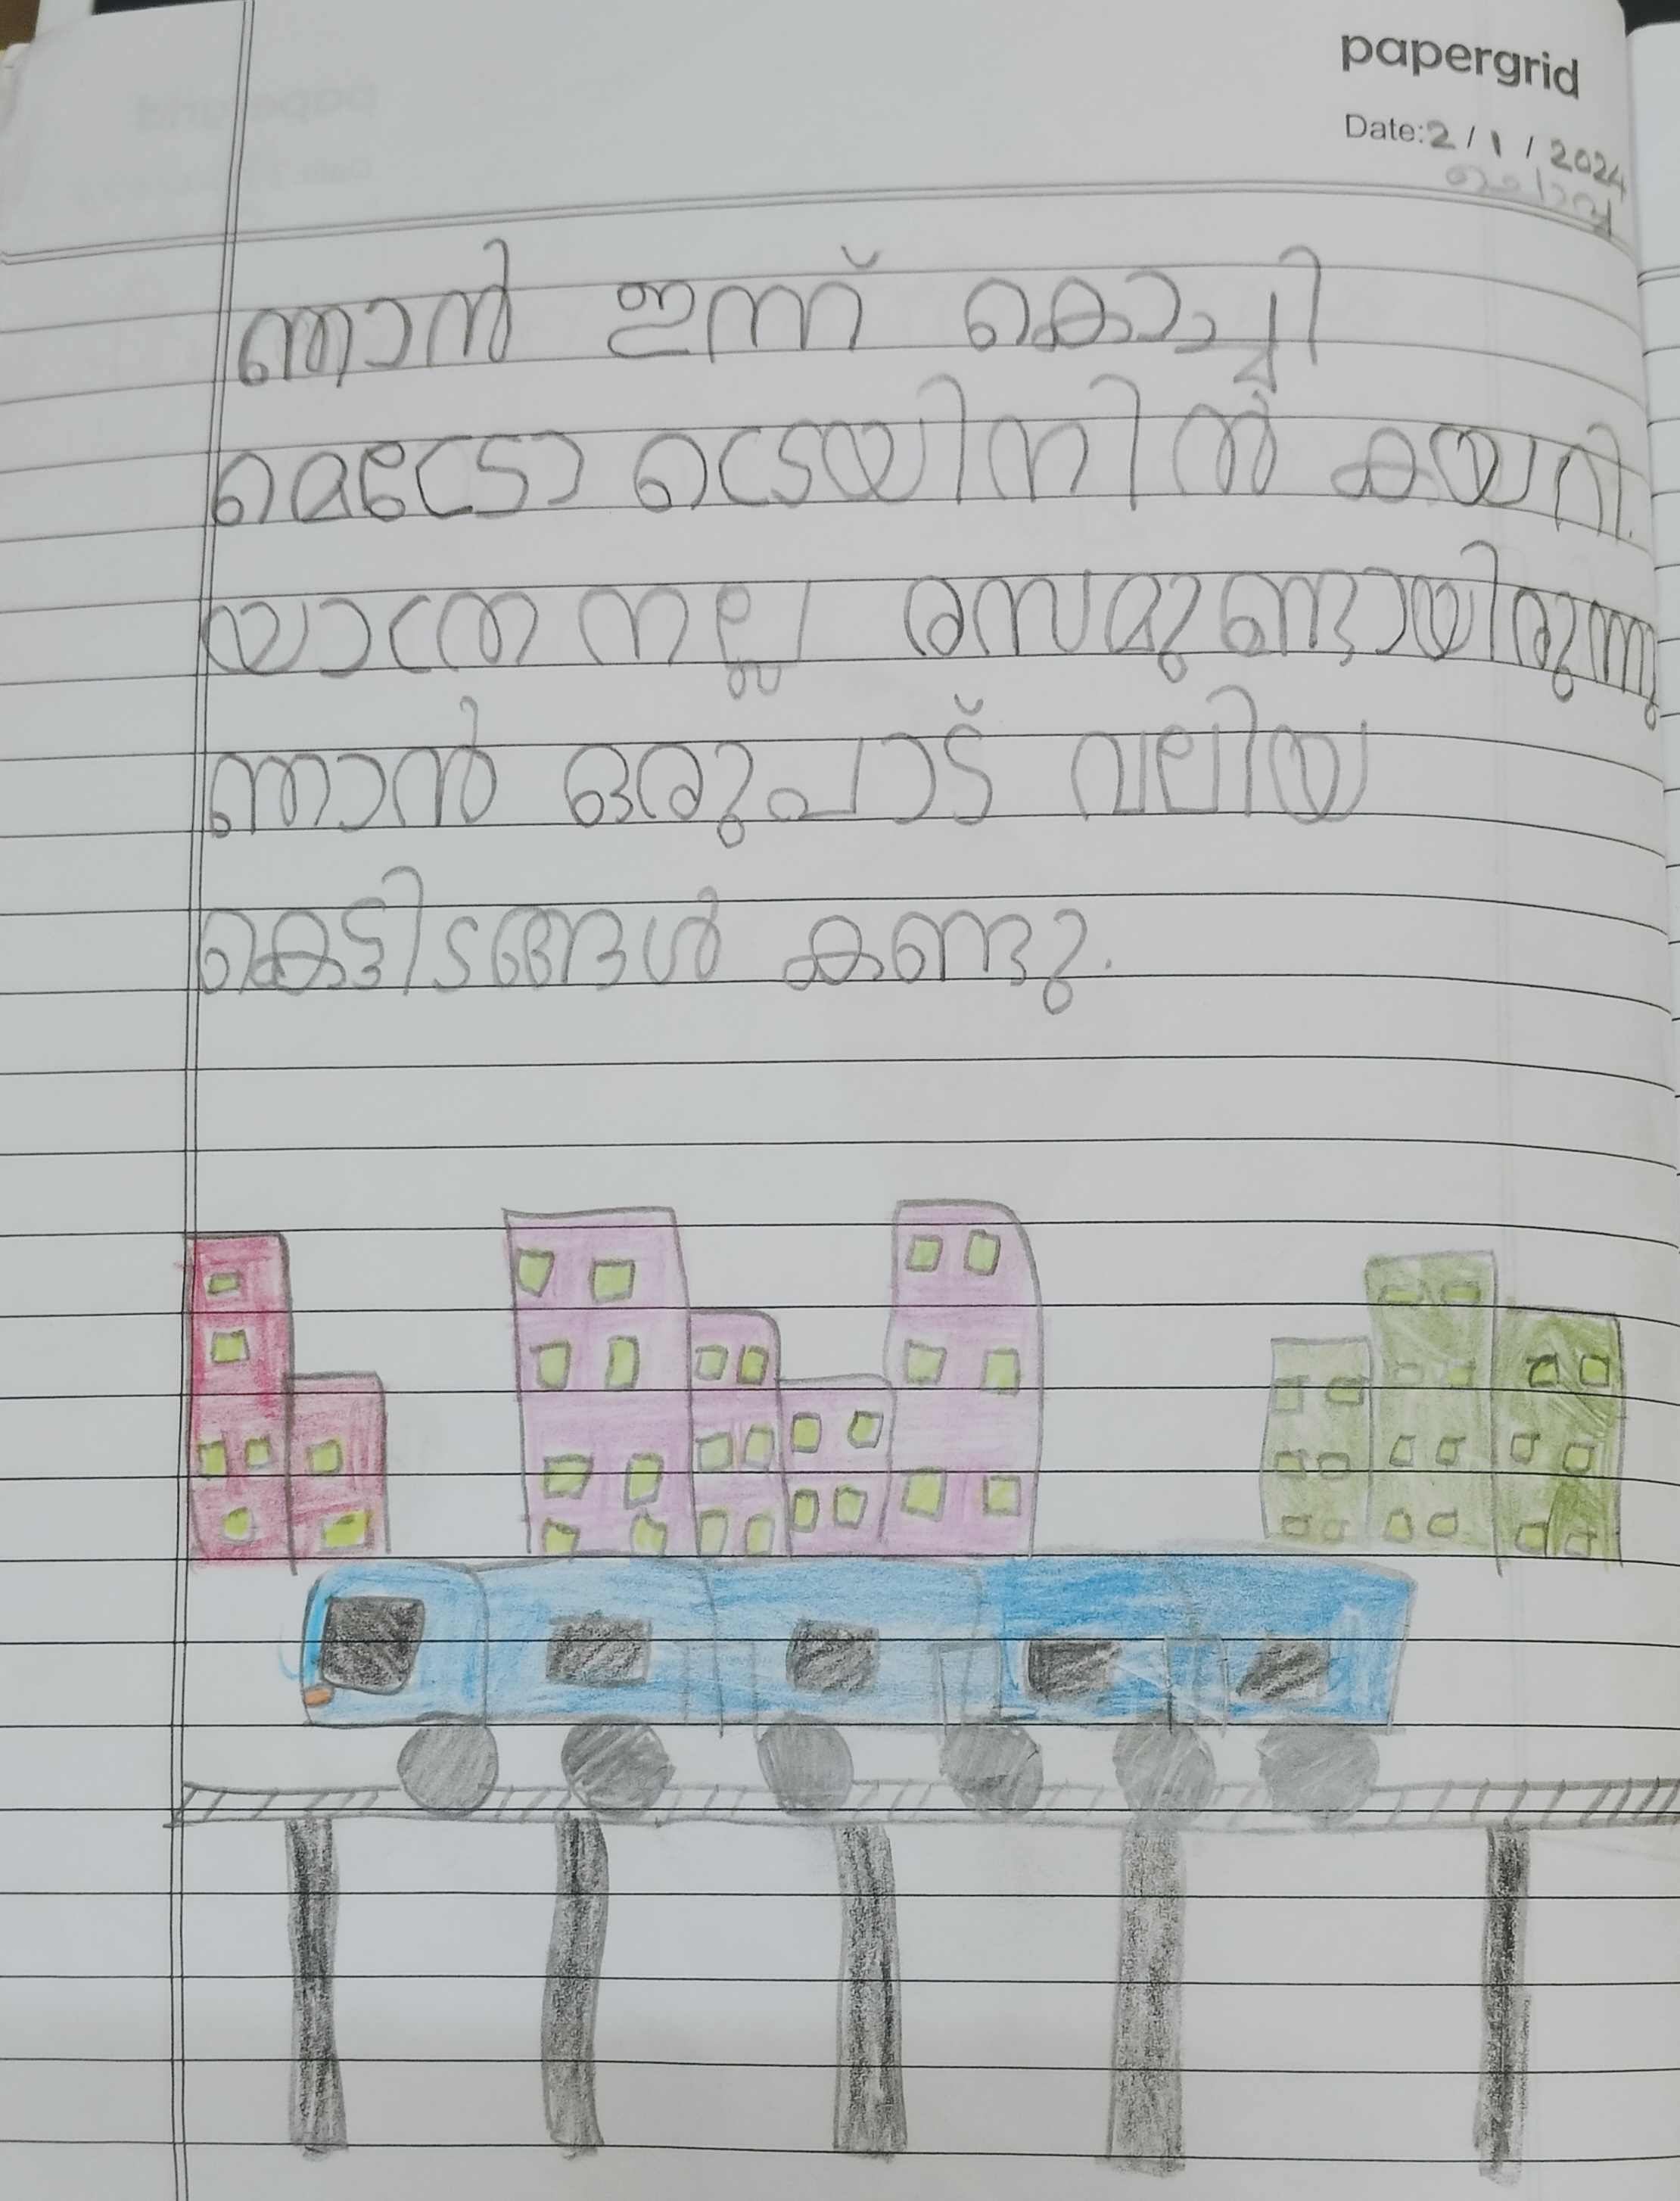 papergrid
Date: 2 / 1 / 2024
ഞാൻ ഇന്ന് കൊച്ചി
മെട്രോ ട്രെയിനിൽ കയറി.
യാത്ര നല്ല രസമുണ്ടായിരുന്നു
ഞാൻ ഒരുപാട് വലിയ
കെട്ടിടങ്ങൾ കണ്ടു.